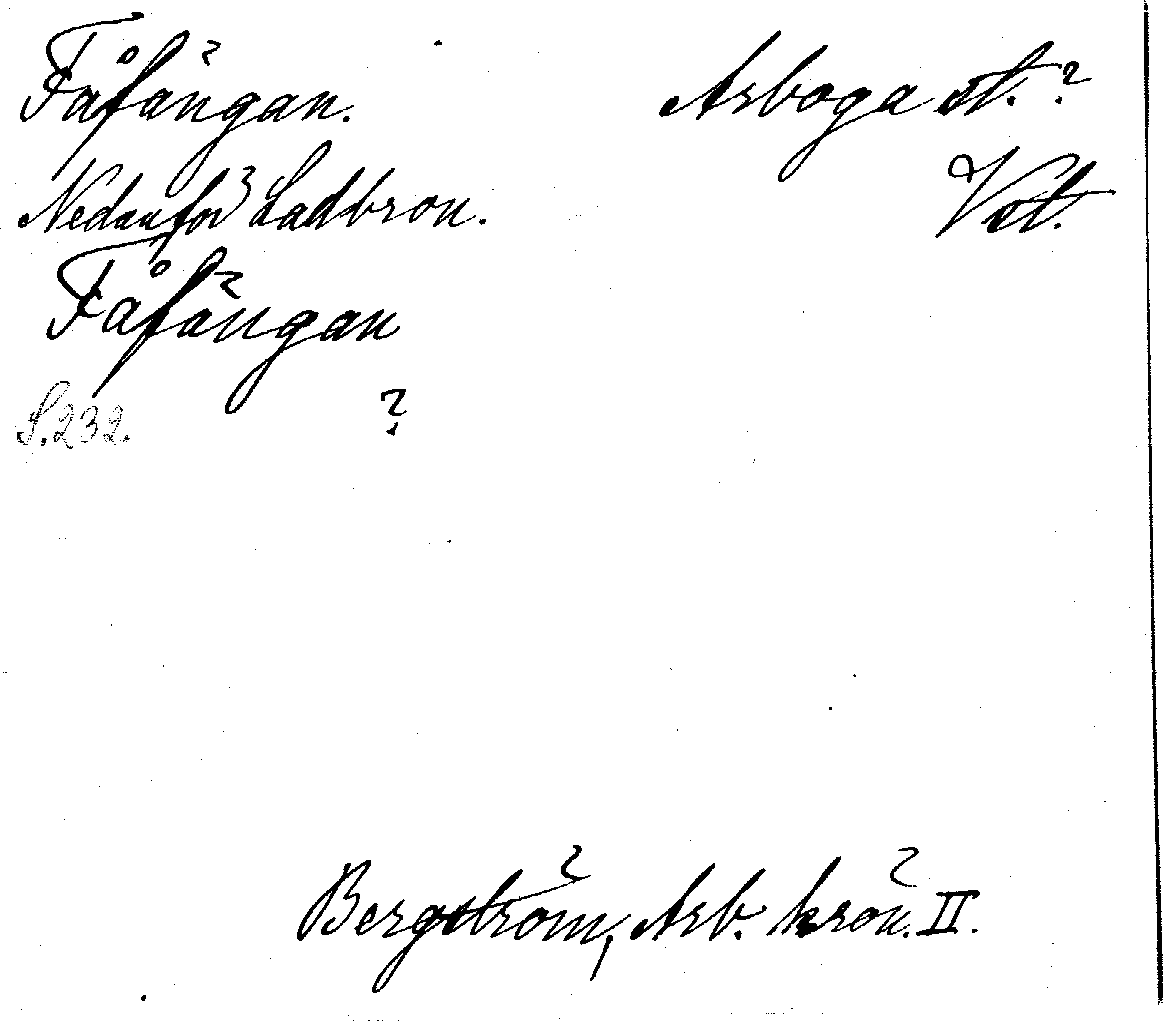 Fåfängan. Arboga st.?
Nedanför Ladbron. Vst.
Fåfängan
S. 232. ?
Bergström, Arb. krön. II.